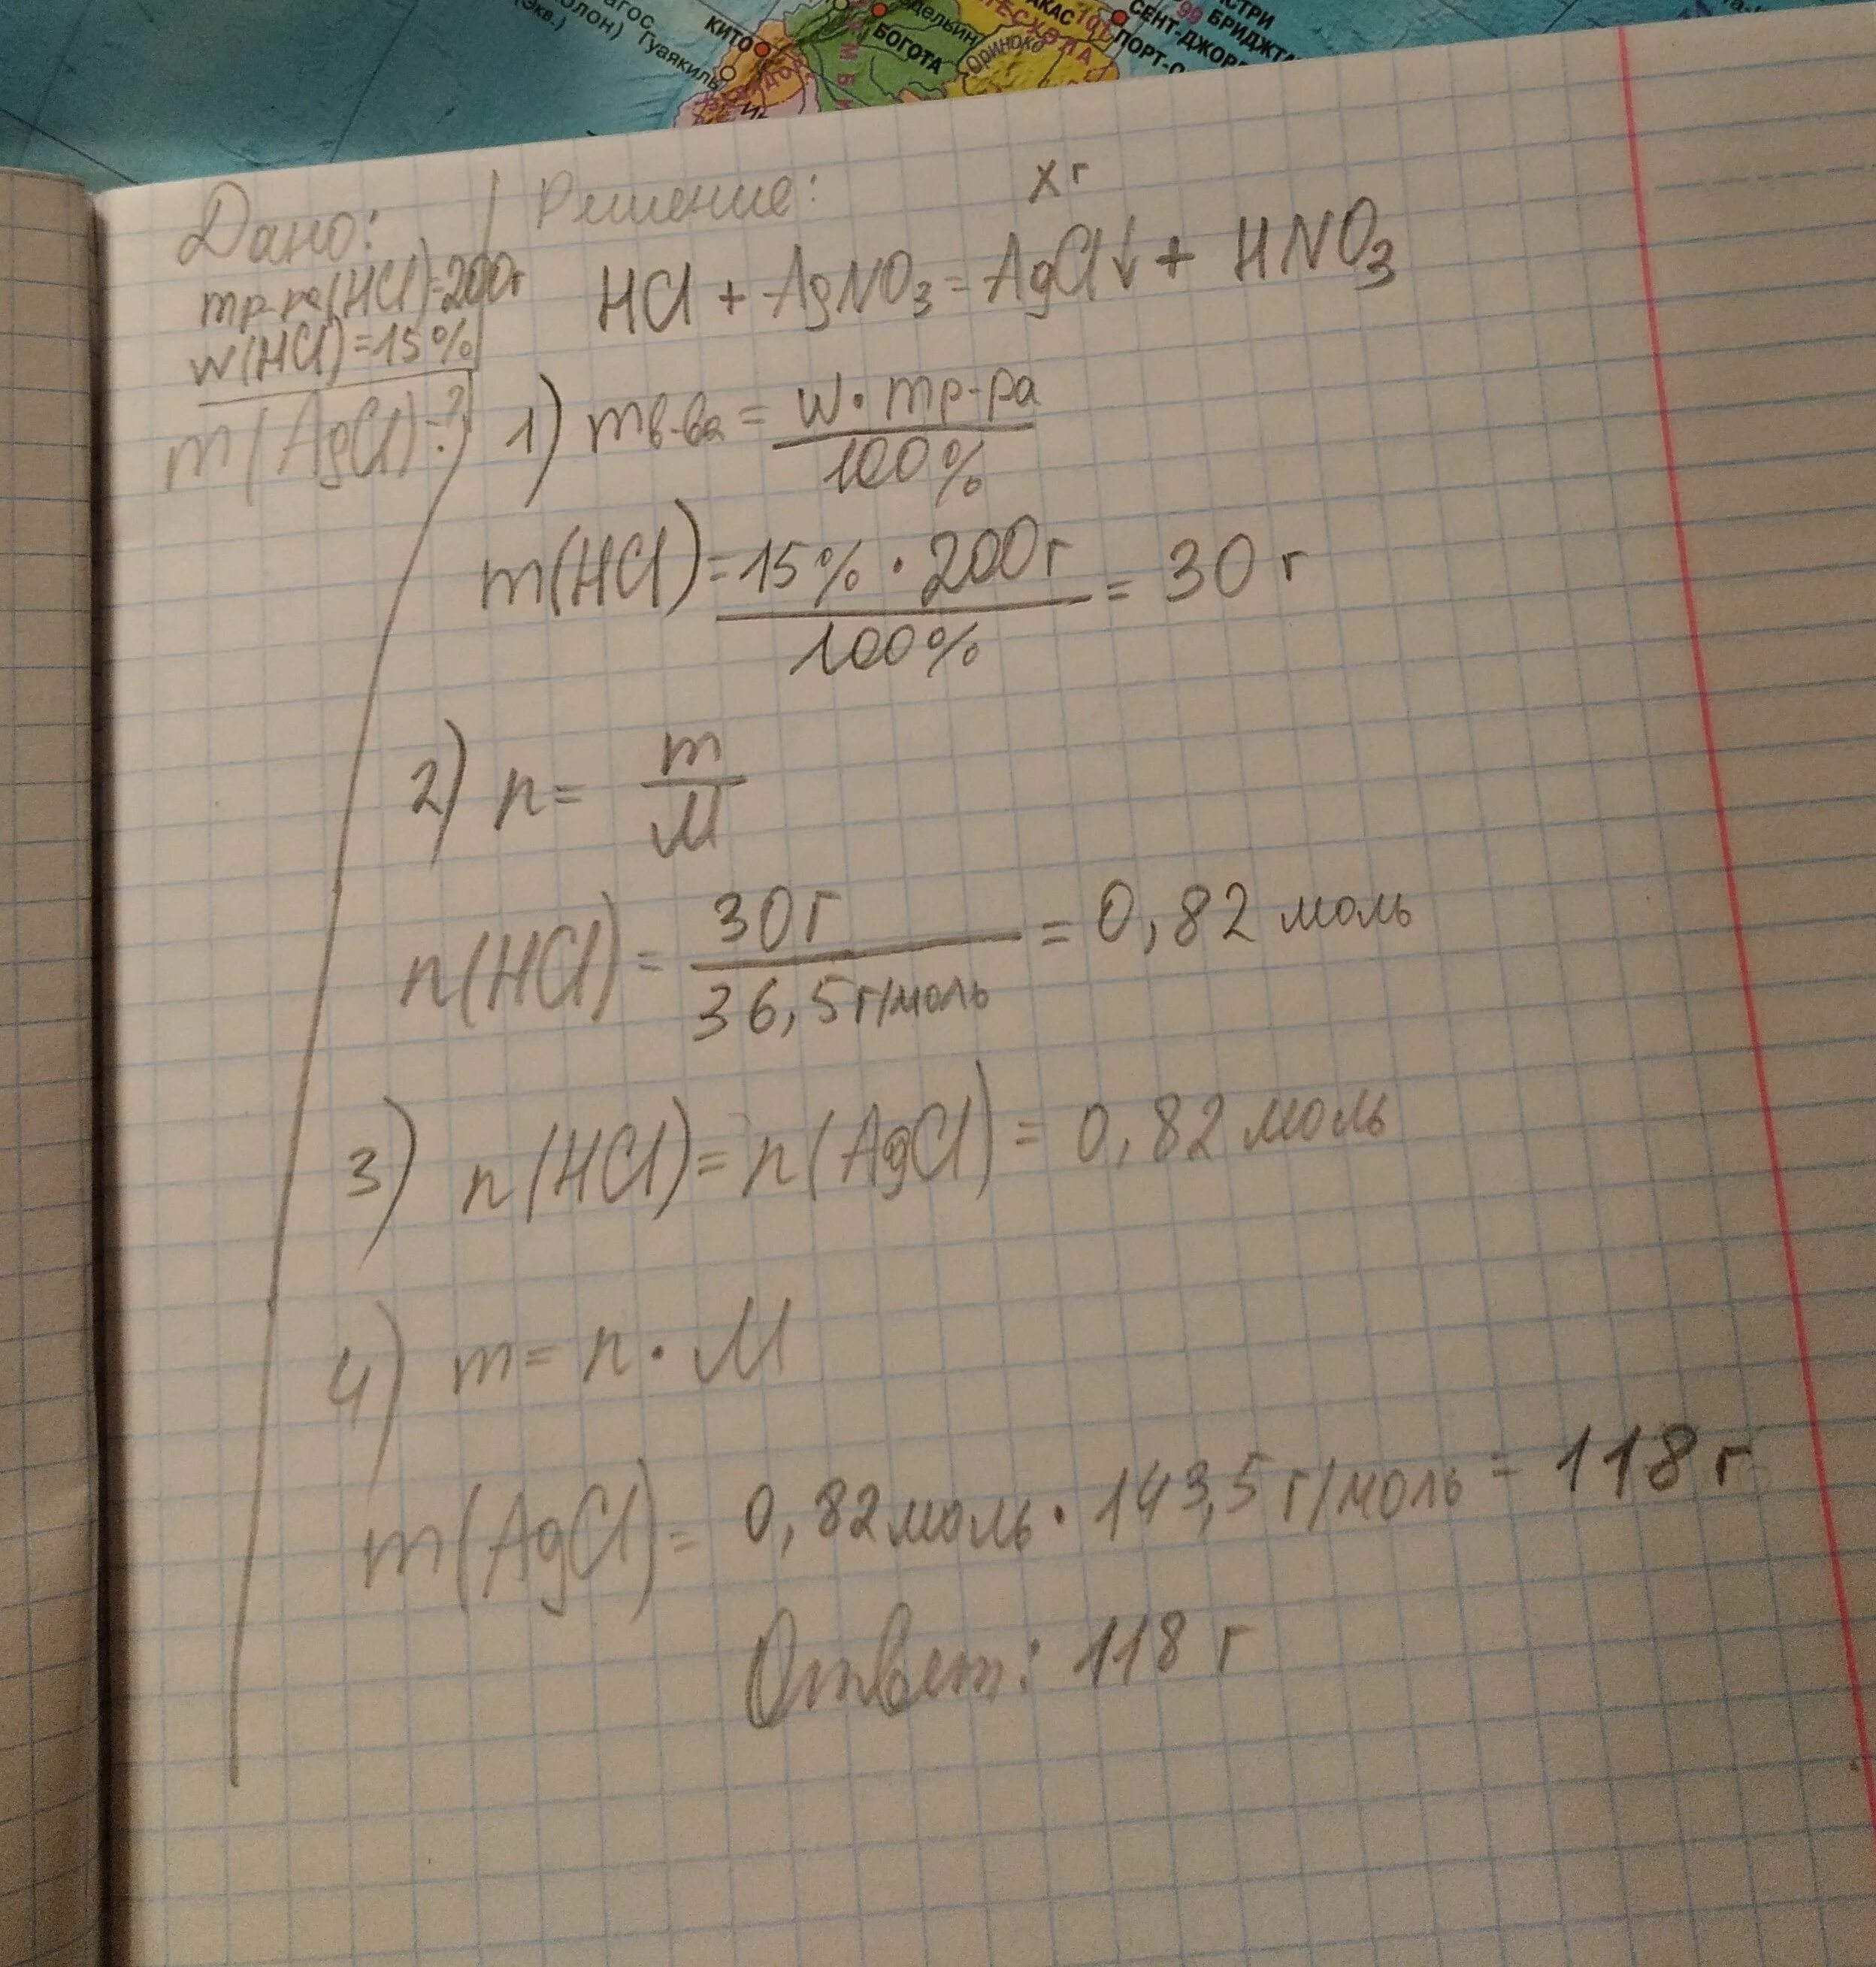 КИТО
Гуаякиль
БОГОТА
Ориноко
СЕНТ-ДЖОР
БРИДЖТ
ПОРТ-
(Экв.)
Дано:
mр-ра(HCl)=200г
w(HCl)=15%
m(AgCl)-?
Решение:
xг
HCl + AgNO₃ = AgCl↓ + HNO₃
1) mв-ва = w · mр-ра / 100%
m(HCl) = 15% · 200г / 100% = 30 г
2) n = m / M
n(HCl) = 30г / 36,5г/моль = 0,82 моль
3) n(HCl) = n(AgCl) = 0,82 моль
4) m = n · M
m(AgCl) = 0,82 моль · 143,5 г/моль = 118 г
Ответ: 118 г